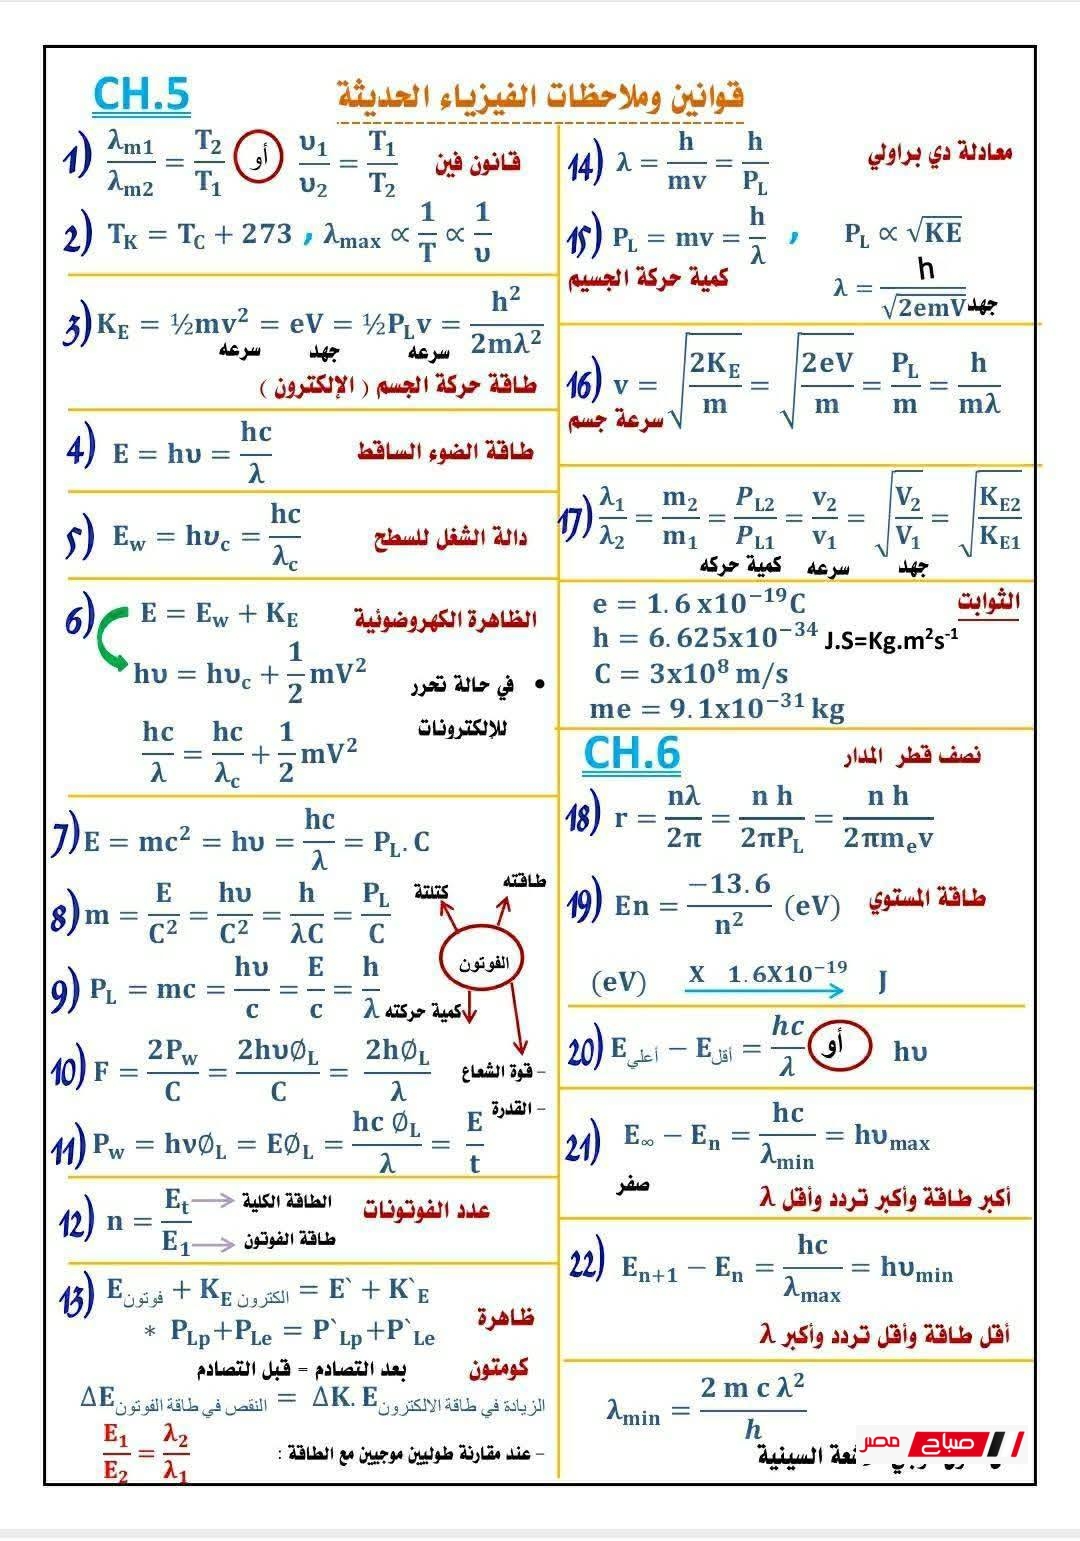 CH.5
قوانين وملاحظات الفيزياء الحديثة
1) λm1/λm2 = T2/T1 أو υ1/υ2 = T1/T2 قانون فين
2) TK = TC + 273 , λmax ∝ 1/T ∝ 1/υ
3) KE = ½mv² = eV = ½PLv = h²/2mλ²
سرعه جهد سرعه
طاقة حركة الجسم ( الإلكترون )
4) E = hυ = hc/λ طاقة الضوء الساقط
5) Ew = hυc = hc/λc دالة الشغل للسطح
6) E = Ew + KE الظاهرة الكهروضوئية
hυ = hυc + 1/2 mV² • في حالة تحرر
للإلكترونات
hc/λ = hc/λc + 1/2 mV²
7) E = mc² = hυ = hc/λ = PL. C
كتلتة طاقته
8) m = E/C² = hυ/C² = h/λC = PL/C
الفوتون
9) PL = mc = hυ/c = E/c = h/λ كمية حركته
10) F = 2Pw/C = 2hυ∅L/C = 2h∅L/λ - قوة الشعاع
- القدرة
11) Pw = hν∅L = E∅L = hc ∅L/λ = E/t
12) n = Et/E1 الطاقة الكلية عدد الفوتونات
طاقة الفوتون
13) Eفوتون + KE الكترون = E` + K`E
ظاهرة
* PLp+PLe = P`Lp+P`Le
كومتون
بعد التصادم = قبل التصادم
ΔE النقص في طاقة الفوتون = ΔK. E الزيادة في طاقة الالكترون
E1/E2 = λ2/λ1 - عند مقارنة طوليين موجيين مع الطاقة :
14) λ = h/mv = h/PL معادلة دي براولي
15) PL = mv = h/λ , PL ∝ √KE
كمية حركة الجسيم
λ = h/√2emV جهد
16) v = √2KE/m = √2eV/m = PL/m = h/mλ
سرعة جسم
17) λ1/λ2 = m2/m1 = PL2/PL1 = v2/v1 = √V2/V1 = √KE2/KE1
كمية حركه سرعه جهد
الثوابت
e = 1.6 x10⁻¹⁹C
h = 6.625x10⁻³⁴ J.S=Kg.m²s⁻¹
C = 3x10⁸ m/s
me = 9.1x10⁻³¹ kg
CH.6
نصف قطر المدار
18) r = nλ/2π = n h/2πPL = n h/2πmev
19) En = −13.6/n² (eV) طاقة المستوي
(eV) X 1.6X10⁻¹⁹ J
20) Eأعلي − Eأقل = hc/λ أو hυ
21) E∞ − En = hc/λmin = hυmax
صفر
أكبر طاقة وأكبر تردد وأقل λ
22) En+1 − En = hc/λmax = hυmin
أقل طاقة وأقل تردد وأكبر λ
λmin = 2 m c λ²/h
السينية
صباح مصر